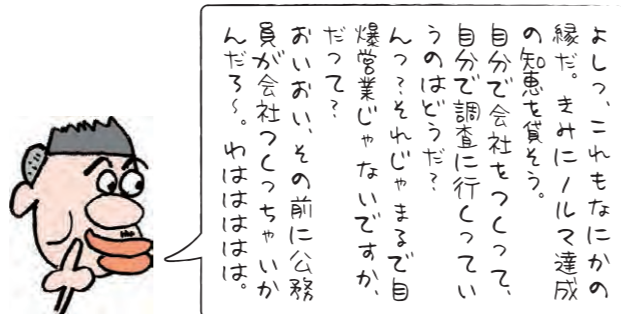 よしっ、これもなにかの
縁だ。きみにノルマ達成
の知恵を貸そう。
自分で会社をつくって、
自分で調査に行くってい
うのはどうだ?
んっ?それじゃまるで自
爆営業じゃないですか、
だって?
おいおい、その前に公務
員が会社つくっちゃいか
んだろ〜。わはははは。